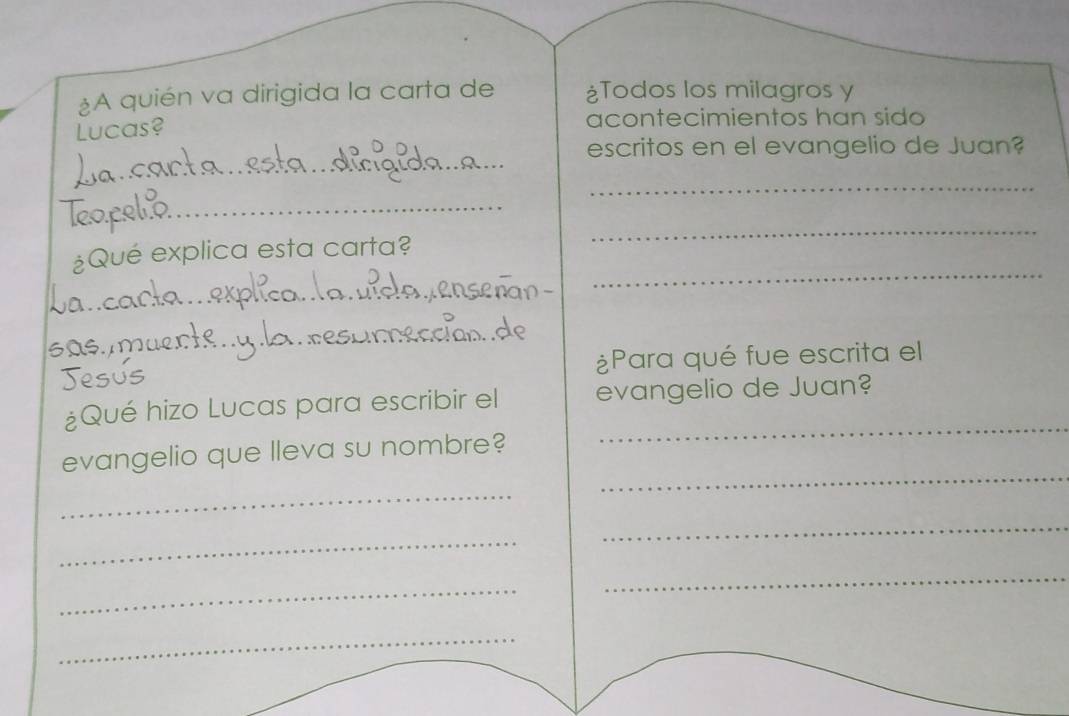 ¿A quién va dirigida la carta de
Lucas?
La carta esta dirigida a
Teopelio
¿Qué explica esta carta?
La carta explica la vida, enseñan-
sas, muerte y la resurreccion de
Jesús
¿Qué hizo Lucas para escribir el
evangelio que lleva su nombre?
¿Todos los milagros y
acontecimientos han sido
escritos en el evangelio de Juan?
¿Para qué fue escrita el
evangelio de Juan?